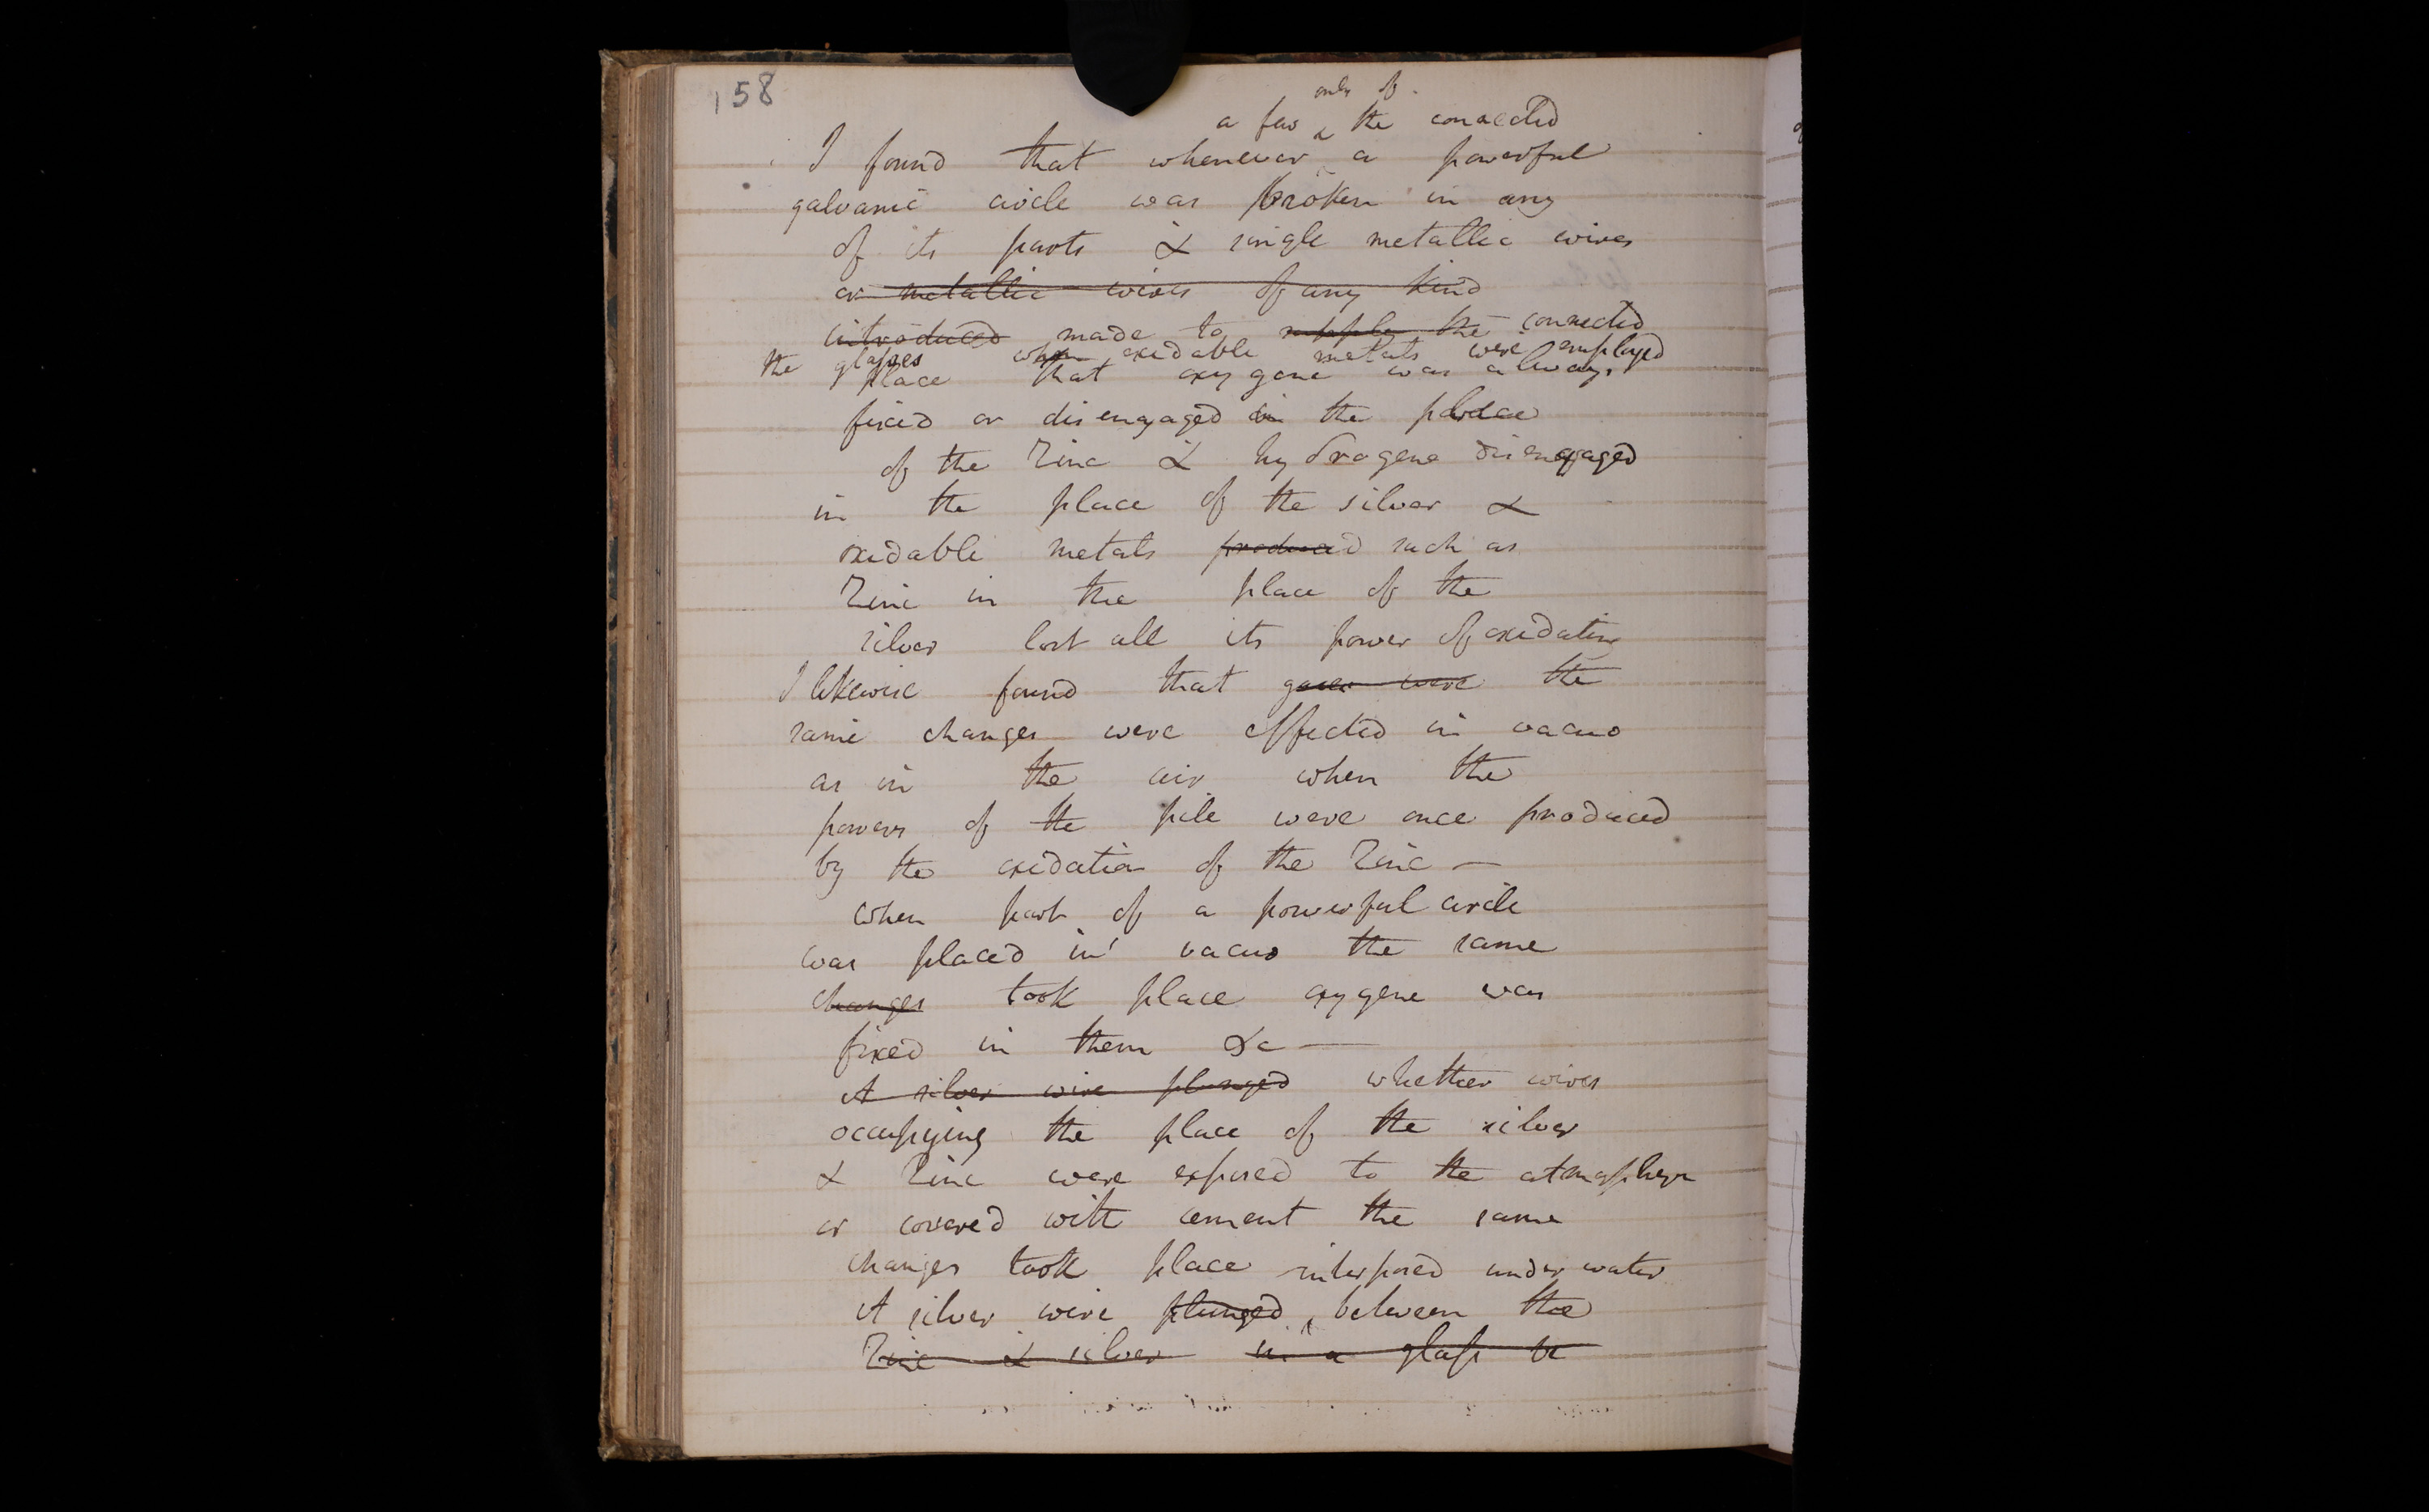 158
only of
a few the connected
I found that whenever a powerful
galvanic circle was broken in any
of its parts & single metallic wires
or metallic wires of any kind
introduced made to supply the connected
the glasses when oxidable metals were employed
place that oxygene was always
fixed or disengaged in the place
of the Zinc & hydrogene disengaged
in the place of the silver &
oxidable metals produced such as
Zinc in the place of the
silver lost all its power of oxidating
I likewise found that gases were the
same changes were effected in vacuo
as in the air when the
powers of the pile were once produced
by the oxidation of the Zinc —
when part of a powerful circle
was placed in vacuo the same
changes took place oxygene was
fixed in them &c —
A silver wire plunged whether wires
occupying the place of the silver
& Zinc were exposed to the atmosphere
or covered with cement the same
changes took place interposed under water
A silver wire plunged between the
Zinc & silver in a glass be